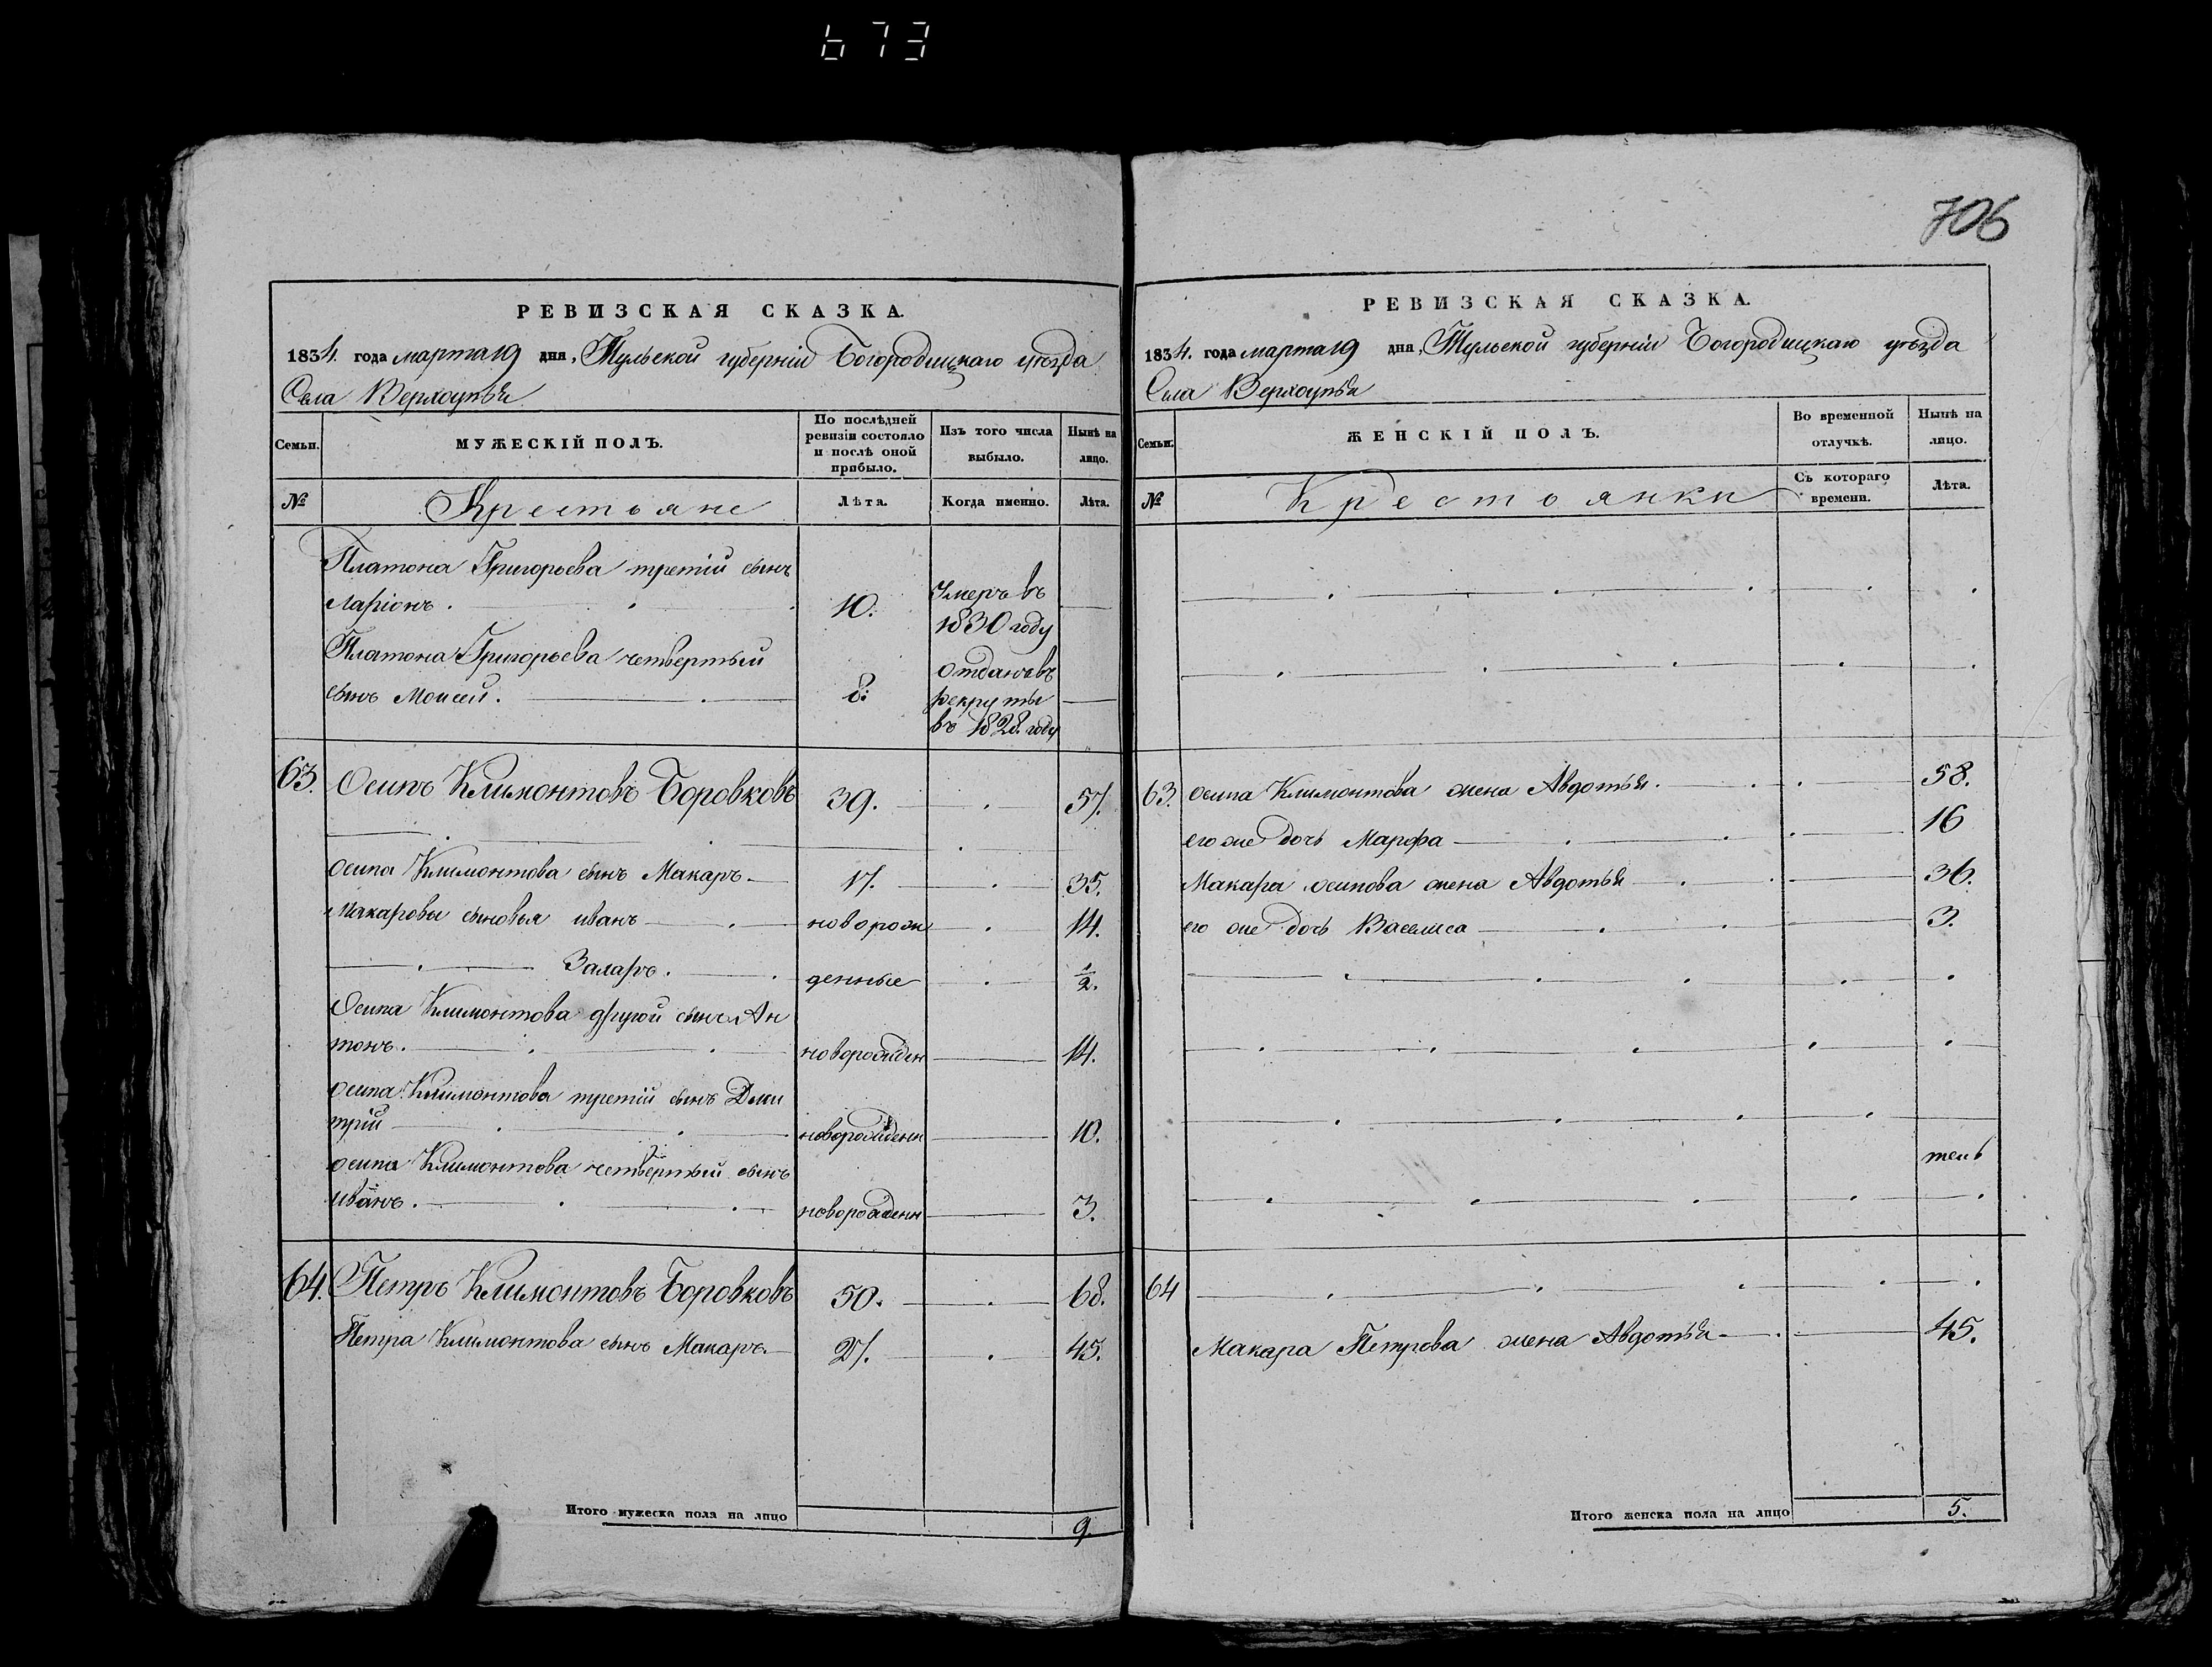 673
706
РЕВИЗСКАЯ СКАЗКА.
1834. года марта 19 дня, Тульской губерніи Богородицкаго уѣзда
Села Верхоупья
Семьи.
МУЖЕСКІЙ ПОЛЪ.
По послѣдней ревизіи состояло и послѣ оной прибыло.
Изъ того числа выбыло.
Нынѣ на лицо.
№
Крестьяне
Лѣта.
Когда именно.
Лѣта.
Платона Григорьева третій сынъ
Ларіонъ. 10. Умеръ въ 1830 году
Платона Григорьева четвертый
сынъ Моисей. 8. отданъ въ рекруты въ 1828. году
63. Осипъ Климонтовъ Боровковъ 39. 57.
осипа Климонтова сынъ Макаръ 17. 35.
Макаровы сыновья иванъ новорож 14.
Захаръ. денные ½.
Осипа Климонтова другой сынъ Ан
тонъ. новорожден 14.
осипа Климонтова третій сынъ Дми
трій новорожденн 10.
осипа Климонтова четвертый сынъ
иванъ. новорожденн 3.
64. Петръ Климонтовъ Боровковъ 50. 68.
Петра Климонтова сынъ Макаръ. 27. 45.
Итого мужеска пола на лицо 9.
РЕВИЗСКАЯ СКАЗКА.
1834. года марта 19 дня, Тульской губерніи Богородицкаго уѣзда
Села Верхоупья
Семьи.
ЖЕНСКІЙ ПОЛЪ.
Во временной отлучкѣ.
Нынѣ на лицо.
№
Крестьянки
Съ котораго времени.
Лѣта.
63. осипа Климонтова жена Авдотья. 58.
его же дочь Марфа 16
Макара осипова жена Авдотья 36.
его же дочь Василиса 3.
64
Макара Петрова жена Авдотья 45.
Итого женска пола на лицо 5.